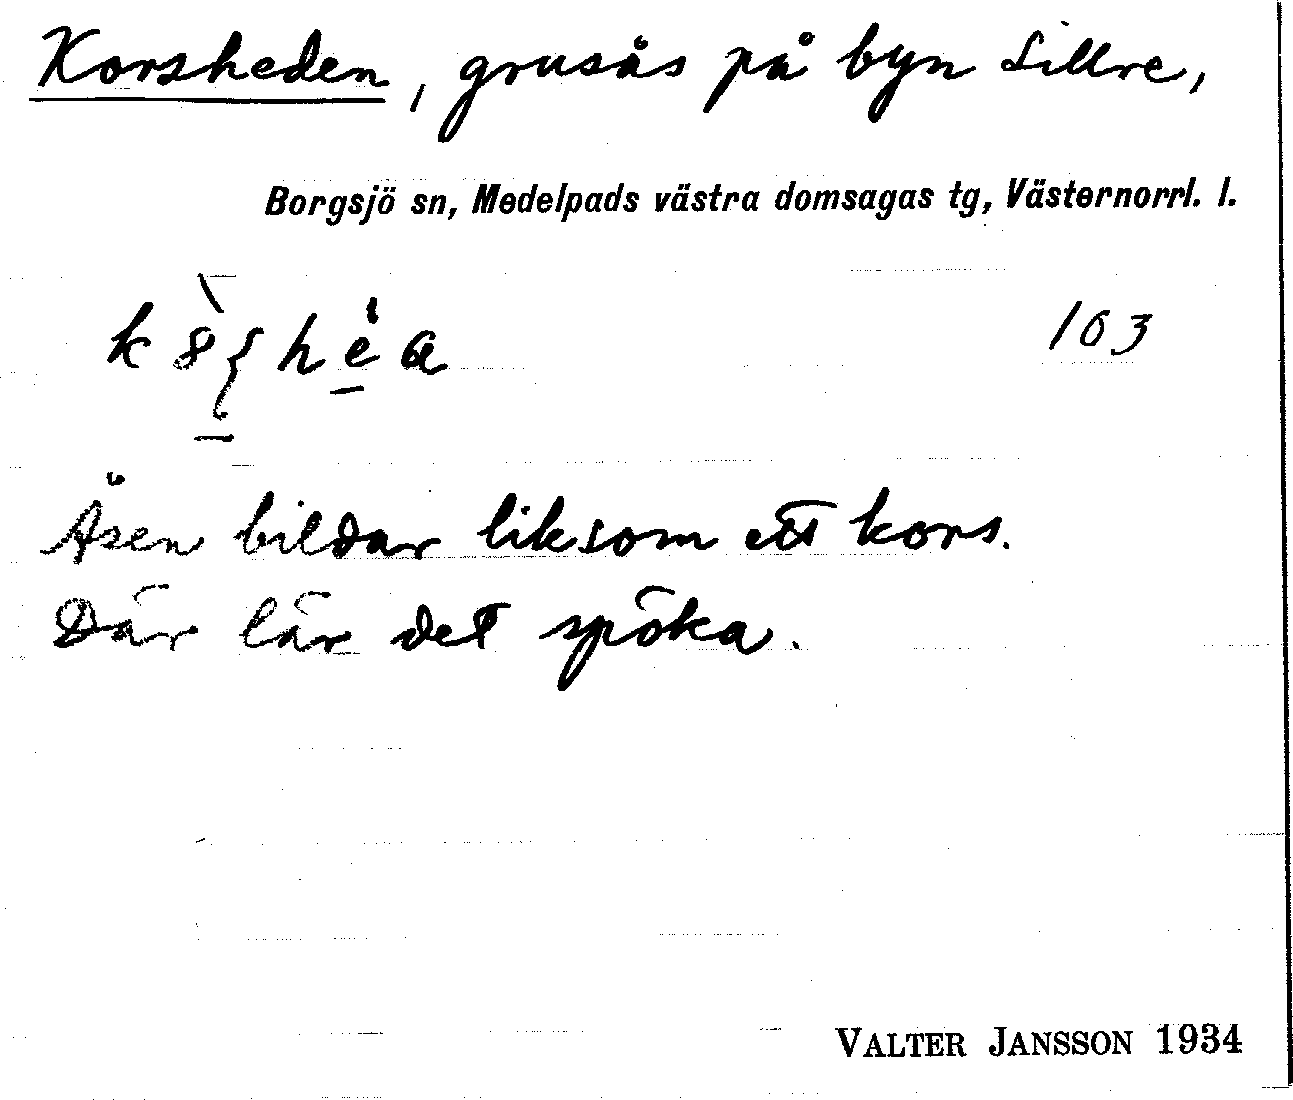 Korsheden, grusås på byn Sillre,
Borgsjö sn, Medelpads västra domsagas tg, Västernorrl. l.
103
Åsen bildar liksom ett kors.
Där lär det spöka.
VALTER JANSSON 1934